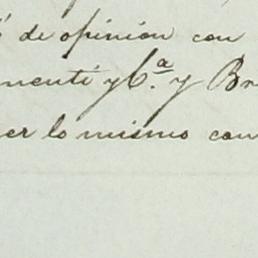 de opinion con
menti y C.ª y Br
er lo mismo con